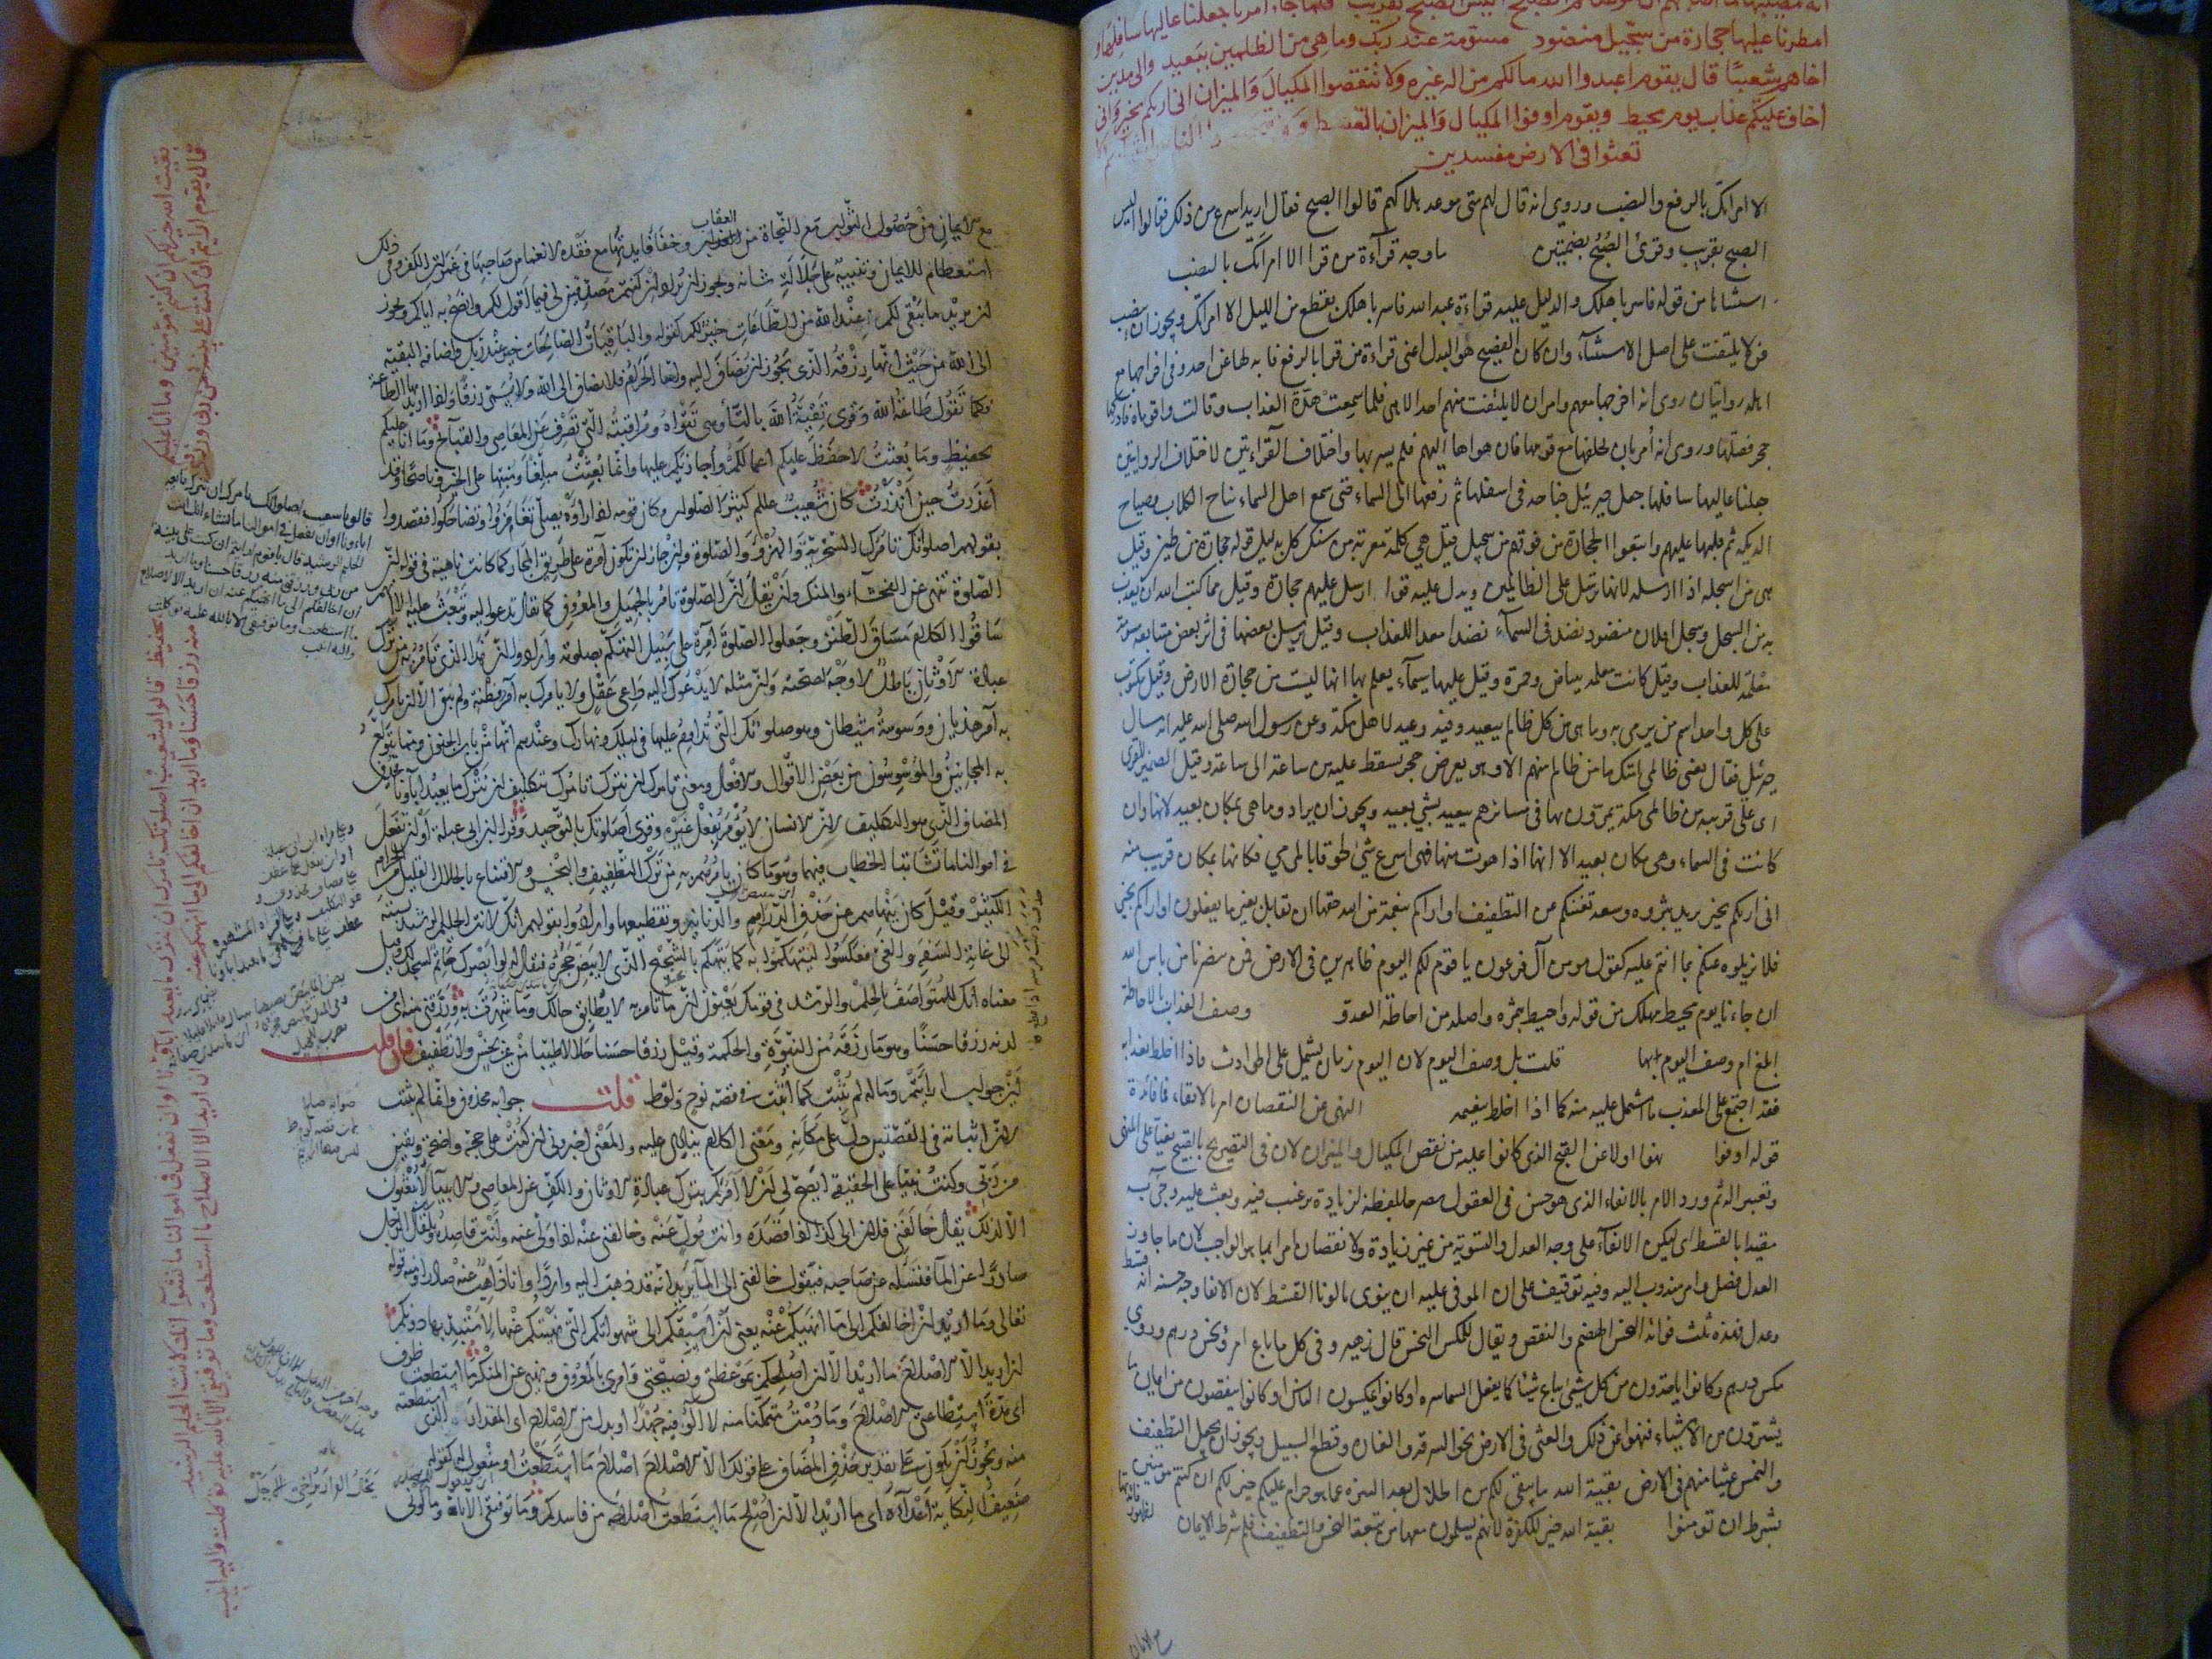 امطرنا عليها حجارة من سجيل منضود مسومة عند ربك وما هي من الظلمين ببعيد والى مدين
اخاهم شعيبا قال يقوم اعبدوا الله مالكم من اله غيره ولا تنقصوا المكيال والميزان انى اريكم بخير وانى
اخاف عليكم عذاب يوم محيط ويقوم اوفوا المكيال والميزان بالقسط
تعثوا فى الارض مفسدين
الا امراتك بالرفع والنصب وروى انه قال لهم متى موعد هلاكهم قالوا الصبح فقال اريد اسرع من ذلك فقالوا اليس
الصبح بقريب وقرئ الصُبُح بضمتين ما وجه قرآءة من قرا الا امراتك بالنصب
استثناها من قوله فاسر باهلك والدليل عليه قراءة عبد الله فاسر باهلك بقطع من الليل الا امراتك ويجوز ان ينصب
من لا يلتفت على اصل الاستثناء وان كان الفصيح هو البدل اعنى قراءة من قرا بالرفع فابدلها عن احد وفى اخراجها مع
اهله روايتان روى انه اخرجها معهم وامر ان لا يلتفت منهم احد الا هى فلما سمعت هدّة العذاب وقالت واقوماه فادركها
حجر فقتلها وروى انه امر بان يخلفها مع قومها فان هواها اليهم فلم يسر بها واختلاف القراءتين لاختلاف الروايتين
جعلنا عاليها سافلها جعل جبرئيل جناحه فى اسفلها ثم رفعها الى السماء حتى سمع اهل السماء نباح الكلاب وصياح
الديكة ثم قلبها عليهم واتبعوا الحجارة من فوقهم من سجيل قيل هى كلمة معربة من سنك كل بدليل قوله حجارة من طين وقيل
هى من اسجله اذا ارسله لانها ترسل على الظالمين ويدل عليه قوله لنرسل عليهم حجارة وقيل مما كتب الله ان يعذب
به من السجل وسجل لفلان منضود نضد فى السمآء نضدا معدا للعذاب وقيل يرسل بعضها فى اثر بعض متتابعة مسومة
معلمة للعذاب وقيل كانت معلمة ببياض وحمرة وقيل عليها سيمآء يعلم بها انها ليست من حجارة الارض وقيل مكتوب
على كل واحد اسم من يرمى به وما هى من كل ظالم ببعيد وفيه وعيد لاهل مكة وعن رسول الله صلى الله عليه انه سال
جبرئيل فقال يعنى ظالمى امتك ما من ظالم منهم الا وهو بعرض حجر يسقط عليه من ساعة الى ساعة وقيل الضمير للقرى
اى هى قريبة من ظالمى مكة يمرون بها فى مسائرهم ببعيد بشئ بعيد ويجوز ان يراد وما هى بمكان بعيد لانها وان
كانت فى السماء وهى مكان بعيد الا انها اذا هوت منها فهى اسرع شئ لحوقا بالمرمى فكانها بمكان قريب منه
انى اريكم بخير يريد بثروة وسعة تغنيكم عن التطفيف او اراكم بنعمة من الله حقها ان تقابل بغير ما تفعلون او اراكم بخير
فلا تزيلوه عنكم بما انتم عليه كقول مومن آل فرعون يا قوم لكم اليوم ظاهرين فى الارض فمن ينصرنا من باس الله
ان جاءنا يوم محيط مهلك من قوله واحيط بثمره واصله من احاطة العدو وصف العذاب بالاحاطة
ابلغ ام وصف اليوم بها قلت بل وصف اليوم لان اليوم زمان يشتمل على الحوادث فاذا احاط بعذابه
فقد اجتمع على المعذب ما اشتمل عليه منه كما اذا احاط بنعيمه النهى عن النقصان امر بالايفاء فما فائدة
قوله اوفوا نهوا اولا عن القبح الذى كانوا عليه من نقص المكيال والميزان لان فى التصريح بالقبيح نعيا على المنهى
وتعييرا له ثم ورد الامر بالايفاء الذى هو حسن فى العقول مصرحا بلفظه لزيادة ترغيب فيه وبعث عليه وجئ به
مقيدا بالقسط اى ليكن الايفآء على وجه العدل والتسوية من غير زيادة ولا نقصان امرا بما هو الواجب لان ما جاوز
العدل فضل وامر مندوب اليه وفيه توقيف على ان الموفى عليه ان ينوى بالوفاء القسط لان الايفاء وجه حسنه انه قسط
وعدل فهذه ثلث فوائد البخس الهضم والنقص ويقال للمكس البخس قال زهير وفى كل ما باع امرؤ بخس درهم وروى
مكس درهم وكانوا ياخذون من كل شئ يباع شيئا كما يفعل السماسرة او كانوا يمكسون الناس او كانوا ينقصون من اثمان ما
يشترون من الاشياء فنهوا عن ذلك والعثى فى الارض نحو السرقة والغارة وقطع السبيل ويجوز ان يجعل التطفيف
والبخس عثيا منهم فى الارض بقية الله ما يبقى لكم من الحلال بعد التنزه عما هو حرام عليكم خير لكم ان كنتم مؤمنين
بشرط ان تومنوا بقية الله خير للكفرة لانهم يسلمون معها من تبعة البخس والتطفيف فلم شرط الايمان
مع الايمان من حصول الثواب مع النجاة من العقاب وخفا فايدتها مع فقده لانغماس صاحبها فى غمرات الكفر وفى ذلك
استعظام للايمان وتنبيه على جلالة شانه ويجوز ان يراد ان كنتم مصدقين لى فيما اقول لكم وانصح به اياكم ويجوز
ان يريد ما يبقى لكم عند الله من الطاعات خير لكم كقوله والباقيات الصالحات خير عند ربك واضافة البقية
الى الله من حيث انها رزقه الذى يجوز ان يضاف اليه واما الحرام فلا يضاف الى الله ولا يسمى رزقا واذا اريد بها الطاعة
فكما تقول طاعة الله وقرى تقية الله بالتاء وهى تقواه ومراقبته التى تصرف عن المعاصى والقبآئح وما انا عليكم
بحفيظ وما بعثت لاحفظ عليكم اعمالكم واجازيكم عليها وانما بعثت مبلغا ومنبها على الخير وناصحا وقد
اعذرت حين انذرت كان شعيب عليه السلام كثير الصلوات وكان قومه اذا راوه يصلى تغامزوا وتضاحكوا فقصدوا
بقولهم اصلوتك تامرك السخرية والهزؤ والصلوة وان جاز ان تكون آمرة على طريق المجاز كما كانت ناهية فى قوله ان
الصلوة تنهى عن الفحشآء والمنكر وان يقال ان الصلوة تامر بالجميل والمعروف كما يقال تدعوا اليه وتبعث عليه الا انهم
ساقوا الكلام مساق الطنز وجعلوا الصلوة آمرة على سبيل التهكم بصلوته وارادوا ان هذا الذى تامر به من ترك
عبادة الاوثان باطل لا وجه لصحته وان مثله لا يدعوك اليه داعى عقل ولا يامرك به آمر فطنة ولم يبق الا ان يامرك
به آمر هذيان ووسوسة شيطان وهو صلوتك التى تداوم عليها فى ليلك ونهارك وعندهم انها من باب الجنون ومما يتولع
به المجانين والموسوسون من بعض الاقوال والافعال ومعنى تامرك ان نترك تامرك بتكليف ان نترك ما يعبد اباونا فحذف
المضاف الذى هو التكليف لان الانسان لا يؤمر بفعل غيره وقرى اصلوتك بالتوحيد وقرا ابن ابى عبلة او ان تفعل
فى اموالنا ما تشآء بتا الخطاب فيهما وهو ما كان يامرهم به من ترك التطفيف والبخس والاقتناع بالحلال القليل من الحرام
الكثير وقيل كان ينهاهم عن حذف الدراهم والدنانير وتقطيعها وارادوا بقولهم انك لانت الحليم الرشيد نسبته
الى غاية السفه والغى فعكسوا ليتهكموا به كما يتهكم بالشحيح الذى لا يبض حجره فيقال له لو ابصرك حاتم لسجد لك وقيل
معناه انك للمتواصف بالحلم والرشد فى قومك يعنون ان ما تامر به لا يطابق حالك وما شهرت به ورزقنى منه اى من
لدنه رزقا حسنا وهو ما رزقه من النبوة والحكمة وقيل رزقا حسنا حلالا طيبا من غير بخس ولا تطفيف فان قلت
اين جواب ارايتم وما له لم يثبت كما اثبت فى قصة نوح ولوط قلت جوابه محذوف وانما لم يثبت
لان اثباته فى القصتين دل على مكانه ومعنى الكلام ينادى عليه والمعنى اخبرونى ان كنت على حجة واضحة ويقين
من ربى وكنت نبيا على الحقيقة ايصح لى ان لا آمركم بترك عبادة الاوثان والكف عن المعاصى والانبيا لا يبعثون
الا لذلك يقال خالفنى فلان الى كذا اذا قصده وانت مول عنه وخالفنى عنه اذا ولى عنه وانت قاصده ويلقاك الرجل
صادرا عن الما فتسئله عن صاحبه فيقول خالفنى الى المآ يريد انه قد ذهب اليه واردا وانا ذاهب عنه صادرا ومنه قوله
تعالى وما اريد ان اخالفكم الى ما انهيكم عنه يعنى ان اسبقكم الى شهواتكم التى نهيتكم عنها لاستبد بها دونكم
ان اريد الا الاصلاح ما اريد الا ان اصلحكم بموعظتى ونصيحتى وامرى بالمعروف ونهيى عن المنكر ما استطعت ظرف
اى مدة استطاعتى الاصلاح وما دمت متمكنا منه لا آلو فيه جهدا او بدل من الاصلاح اى المقدار الذى استطعته
منه ويجوز ان يكون على تقدير حذف المضاف على قولك الا الاصلاح اصلاح ما استطعت او مفعول له كقوله
ضعيف النكاية اعدآءه اى ما اريد الا ان اصلح ما استطعت اصلاحه من فاسدكم وما توفيقى الا بالله وما كونى
يخال الفرار يراخى الاجل
قالوا يا شعيب اصلواتك تامرك ان نترك ما يعبد
اباءونا او ان نفعل فى اموالنا ما نشاء انك لانت
الحليم الرشيد قال يا قوم ارايتم ان كنت على بينة
من ربى ورزقنى منه رزقا حسنا وما اريد
ان اخالفكم الى ما انهيكم عنه ان اريد الا الاصلاح
ما استطعت وما توفيقى الا بالله عليه توكلت
واليه انيب
بقيت الله خير لكم ان كنتم مؤمنين وما انا عليكم بحفيظ قالوا يشعيب اصلوتك تامرك ان نترك ما يعبد اباؤنا او ان نفعل فى اموالنا ما نشؤا انك لانت الحليم الرشيد
قال يقوم ارايتم ان كنت على بينة من ربى ورزقنى منه رزقا حسنا وما اريد ان اخالفكم الى ما انهيكم عنه ان اريد الا الاصلاح ما استطعت وما توفيقى الا بالله عليه توكلت واليه انيب